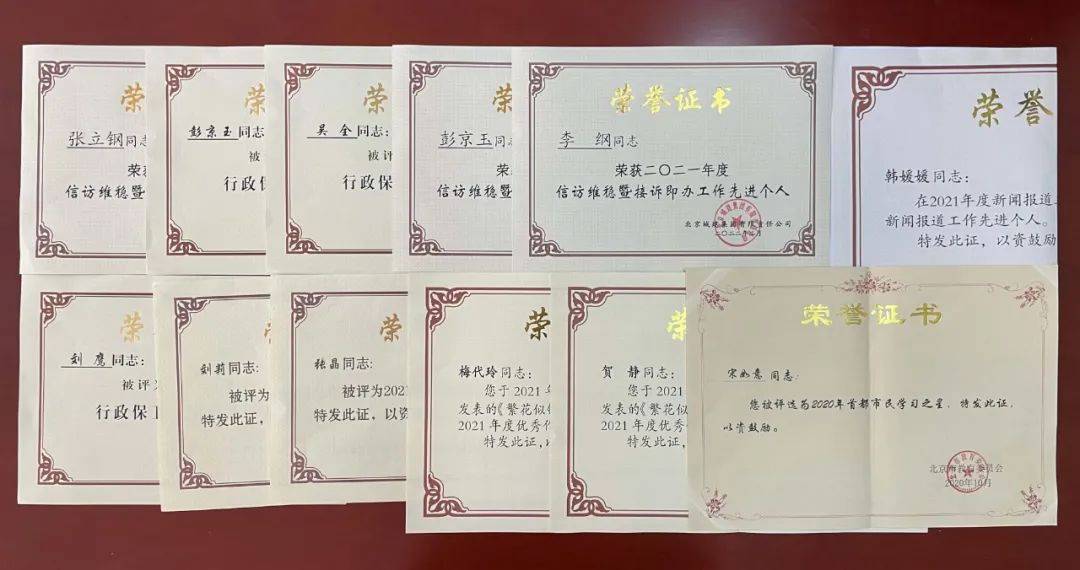 荣
张立钢同志
荣获
信访维稳暨
荣
彭京玉同志
被
行政保
荣
吴全同志:
被评
行政保
荣
彭京玉同志
荣
信访维稳暨
荣誉证书
李 纲同志
荣获二〇二一年度
信访维稳暨接诉即办工作先进个人
北京城建集团有限责任公司
二〇二二年 月
荣誉
韩媛媛同志:
在2021年度新闻报道
新闻报道工作先进个人。
特发此证,以资鼓励
荣
刘 鹰同志:
被评
行政保
荣
刘莉同志:
被评为
特发此证,
荣
张晶同志:
被评为2021
特发此证,以资
荣
梅代玲同志:
您于 2021 年
发表的《繁花似锦
2021 年度优秀作
特发此证,以
荣
贺 静同志:
您于 2021 年
发表的《繁花似
2021 年度优秀
特发此证,
荣誉证书
宋如意 同志:
您被评选为2020年首都市民学习之星,特发此证,
以资鼓励。
北京市教育委员会
2020年10月